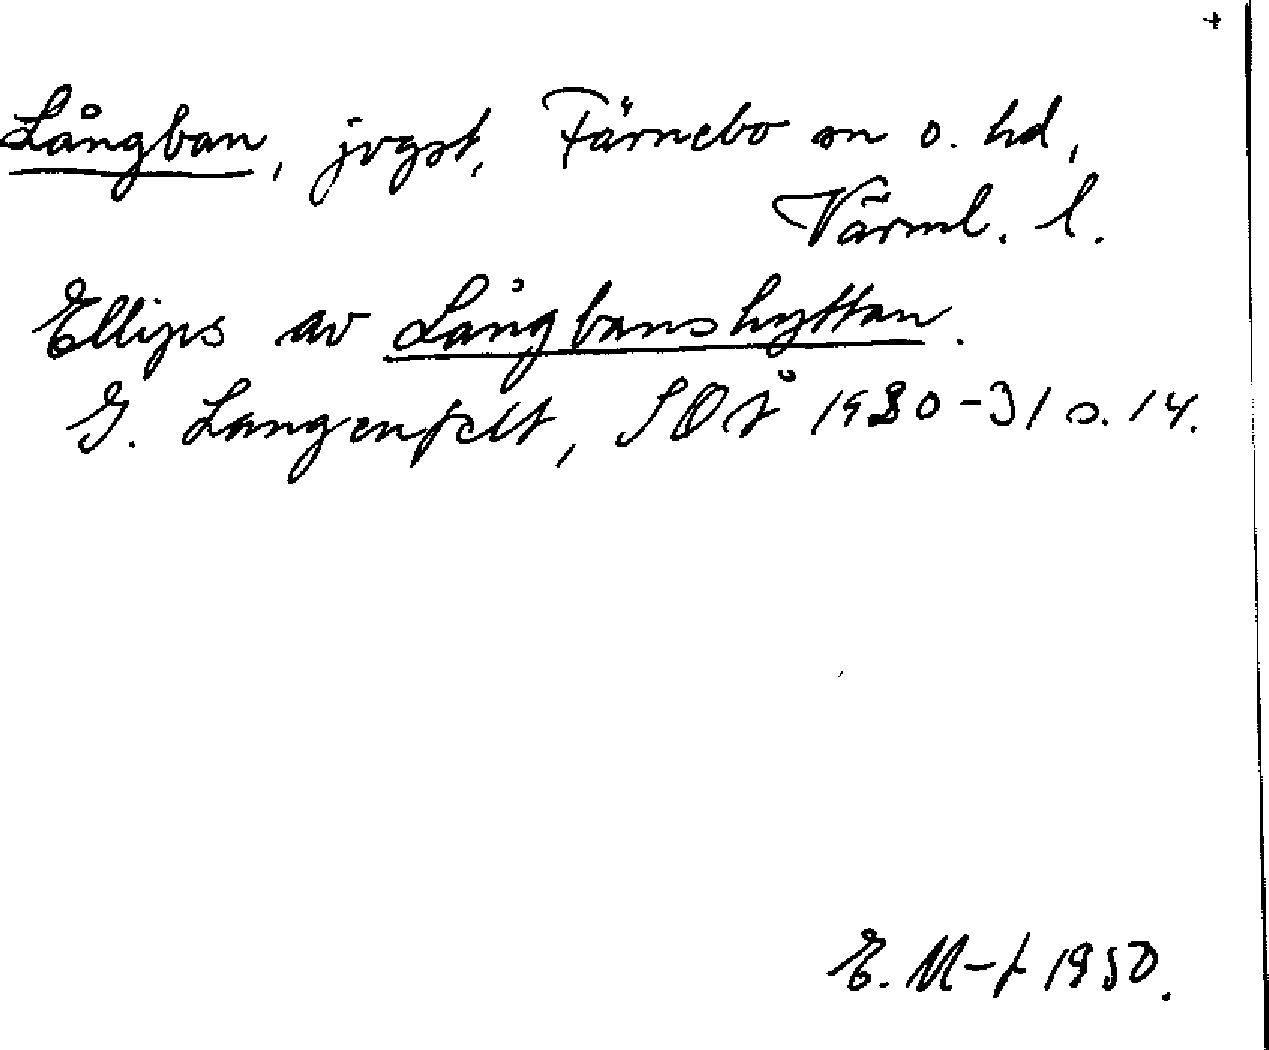 +
Långban, jvgst, Färnebo sn o. hd,
Värml. l.
Ellips av Långbanshyttan.
G. Langenfelt, SOÅ 1930-31 s. 14.
E. M-t 1950.